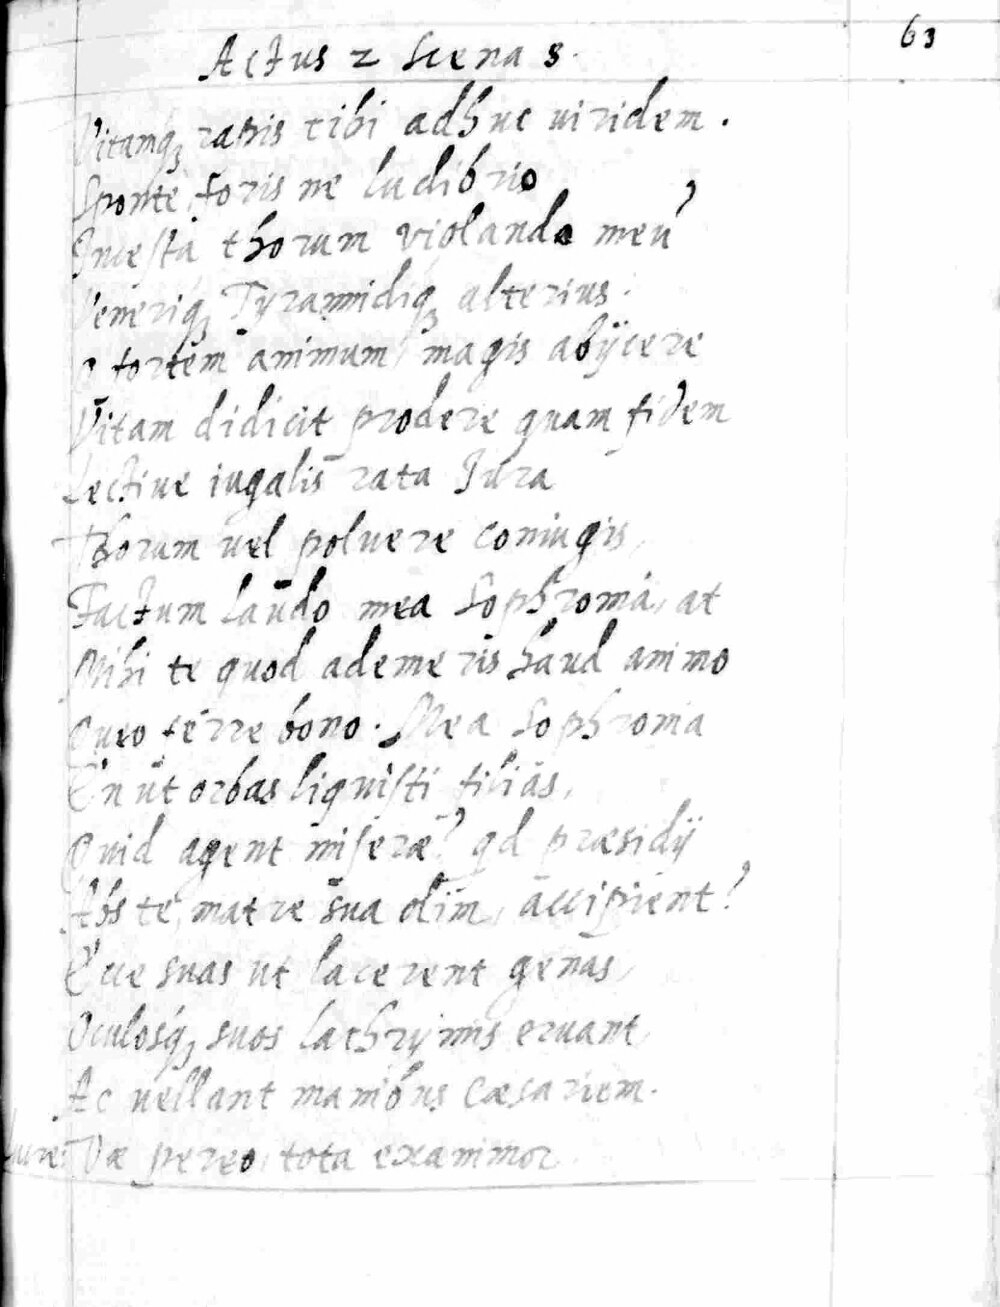 63
Actus 2 Scena 8.
Vitamq; rapis tibi adhuc uiridem.
Sponte, foris ne ludibrio
Incesta thorum violando meu
Veneriq; Tyrannidiq; alterius.
O fortem animum, magis abijcere
Vitam didicit prodere quam fidem
Lectiue iugalis rata Iura
Thorum uel poluere coniugis,
Factum laudo mea Sophronia, at
Mihi te quod ademeris haud animo
Queo ferre bono. Mea Sophronia
En ut orbas liquisti filias,
Quid agent miserae? qd praesidij
Abs te, matre sua olim, accipient?
Quae suas ut lacerent genas,
Oculosq; suos lachrymis eruant,
Ac uellant manibus Caesariem.
Vae pereo, tota exanimor